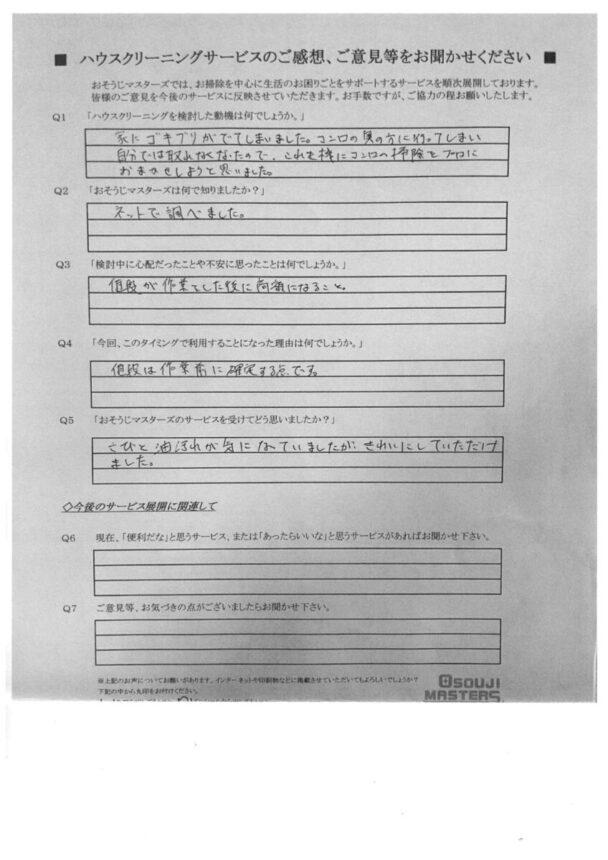 ■ ハウスクリーニングサービスのご感想、ご意見等をお聞かせください ■
おそうじマスターズでは、お掃除を中心に生活のお困りごとをサポートするサービスを順次展開しております。
皆様のご意見を今後のサービスに反映させていただきます。お手数ですが、ご協力の程お願いしたします。
Q1 「ハウスクリーニングを検討した動機は何でしょうか。」
家にゴキブリがでてしまいました。コンロの奥の方に行ってしまい
自分では取れなくなったので、これを機にコンロの掃除をプロに
おまかせしようと思いました。
Q2 「おそうじマスターズは何で知りましたか？」
ネットで調べました。
Q3 「検討中に心配だったことや不安に思ったことは何でしょうか。」
値段が作業をした後に高額になること。
Q4 「今回、このタイミングで利用することになった理由は何でしょうか。」
値段は作業前に確定する点です。
Q5 「おそうじマスターズのサービスを受けてどう思いましたか？」
さびと油汚れが気になっていましたが、きれいにしていただけ
ました。
◇今後のサービス展開に関連して
Q6 現在、「便利だな」と思うサービス、または「あったらいいな」と思うサービスがあればお聞かせ下さい。
Q7 ご意見等、お気づきの点がございましたらお聞かせ下さい。
※上記のお声についてお願いがあります。インターネットや印刷物などに掲載させていただいてもよろしいでしょうか？
下記の中から丸印をお付けください。
OSOUJI
MASTERS